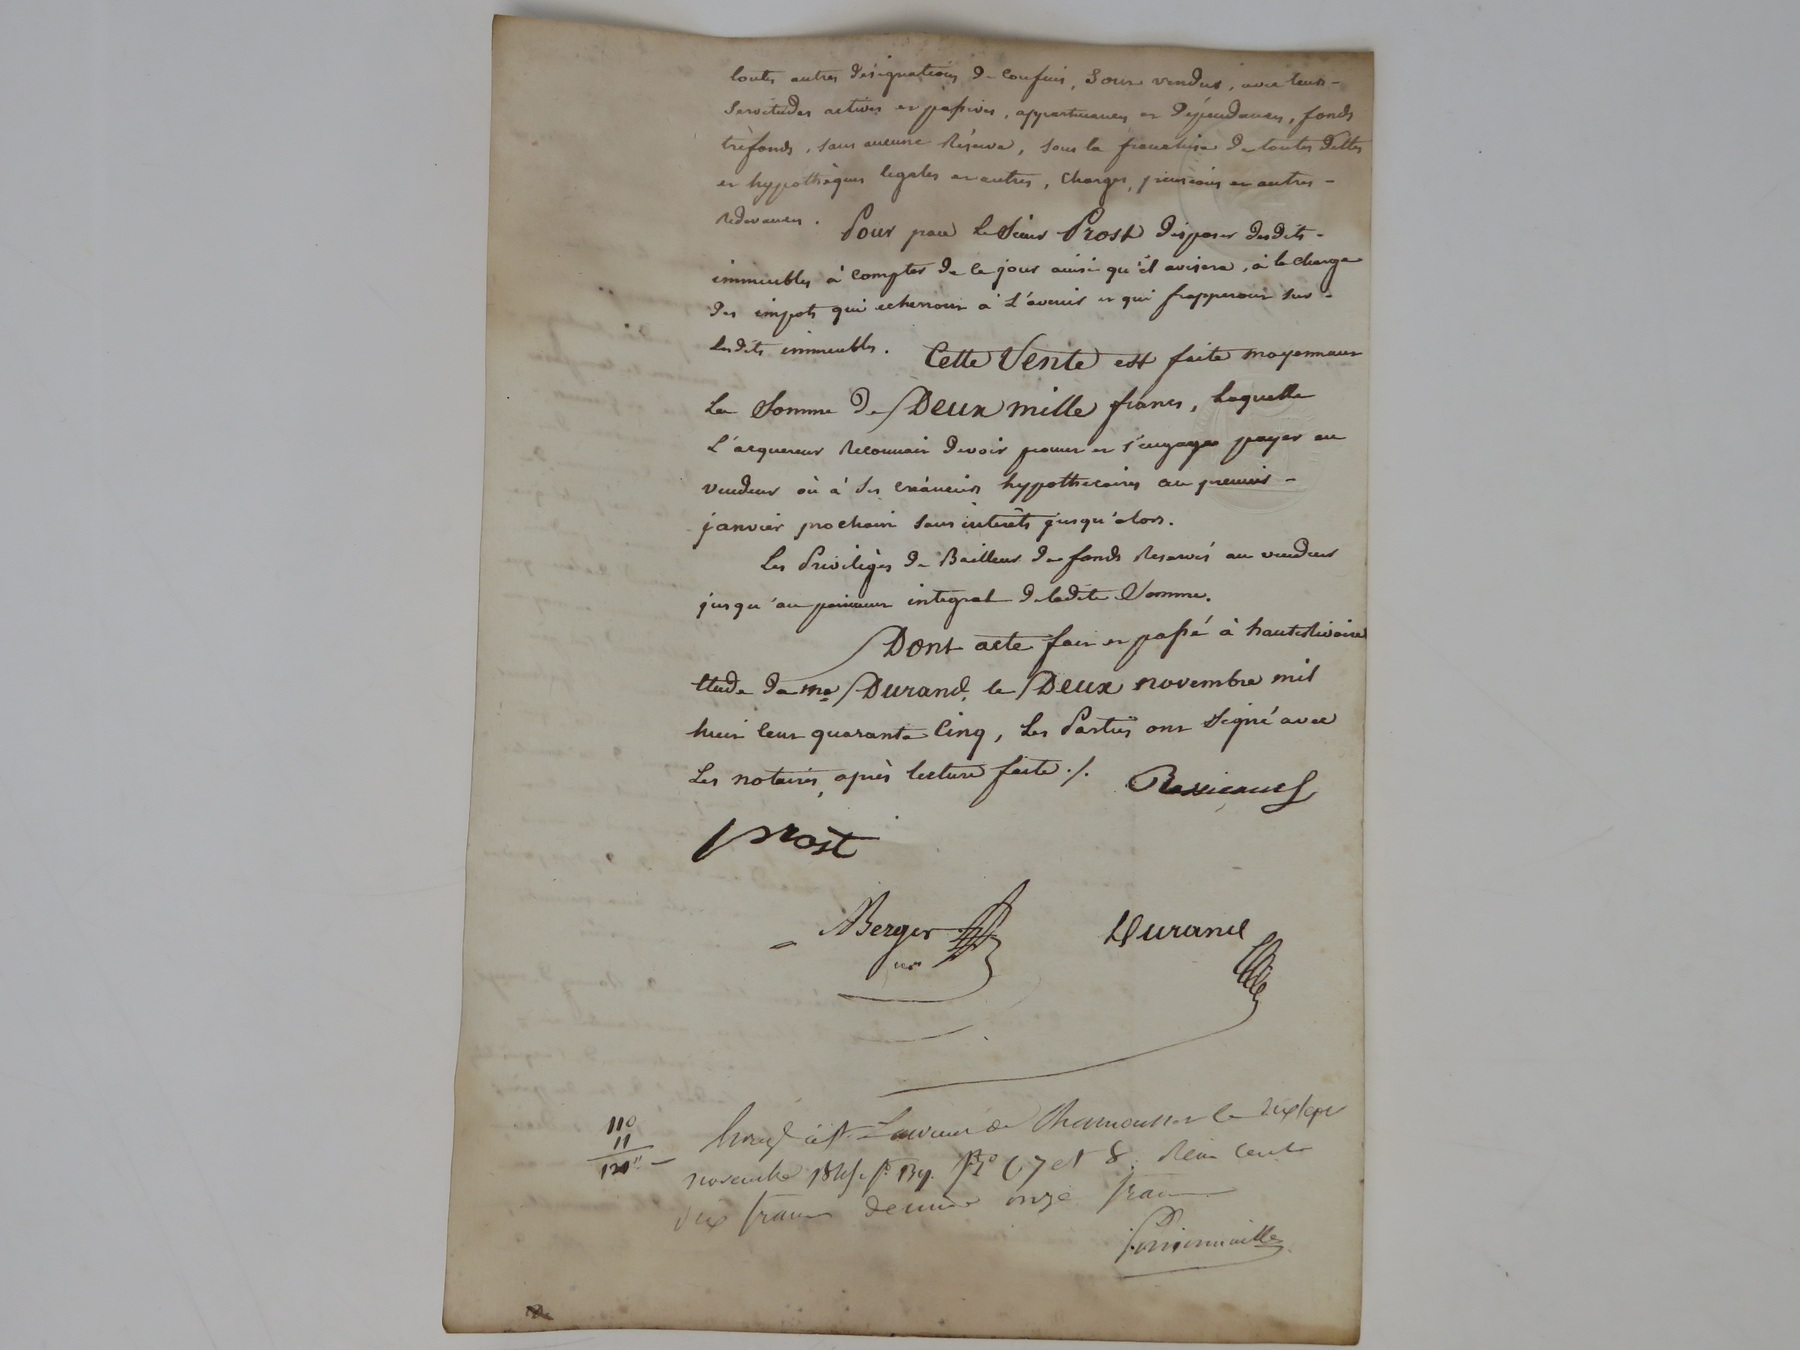 toutes autres désignations de confins, sont vendus, avec leurs -
servitudes actives et passives, appartenances et Dépendances, fonds
tréfonds, sans aucune Réserve, sous la franchise de toutes dettes
et hypothèques legales et autres, charges, pensions et autres -
redevances. Pour par le sieur Prost disposer desdits -
immeubles à compter de ce jour ainsi qu'il avisera, à la charge
des impots qui echerront à l'avenir et qui frapperont sur -
lesdits immeubles. Cette Vente est faite moyennant
La Somme de Deux mille francs, Laquelle
L'acquereur Reconnait devoir promet et s'engage payer au
vendeur où à ses créanciers hypothécaires au premier -
janvier prochain sans intérêts jusqu'alors.
Les Privilèges de Bailleur de fonds Reservés au vendeur
jusqu'au paiement integral de ladite Somme.
Dont acte fait et passé à hauterivoire
Etude de Me Durand, le Deux novembre mil
huit cent quarante Cinq, Les Parties ont Signé avec
Les notaires, après lecture faite ./.
prost
Berger Durand
nre
110
11
121"
à St Laurent de Chamousset le dix sept
novembre 1845 fo 139. Ro C 7 et 8. Reçu cent
dix francs decime onze francs